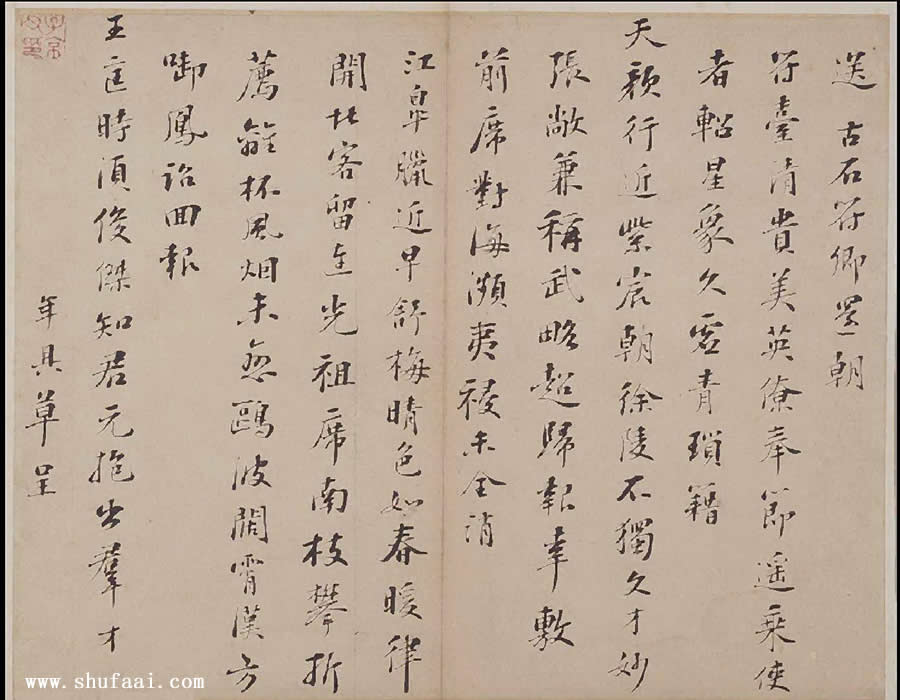 送 古石符卿還朝
符臺清貴美英僚奉節遥乘使
者軺星象久虛青瑣籍
天顔行近紫宸朝徐陵不獨文才妙
張敞兼稱武略超歸報幸敷
前席對海瀕夷祲未全消
江皐臘近早舒梅晴色如春暖律
開北客留連光祖席南枝攀折
薦離杯風烟未忽鷗波闊霄漢方
啣鳳詔回報
王匡時須俊傑知君元抱出羣才
年具草呈
www.shufaai.com